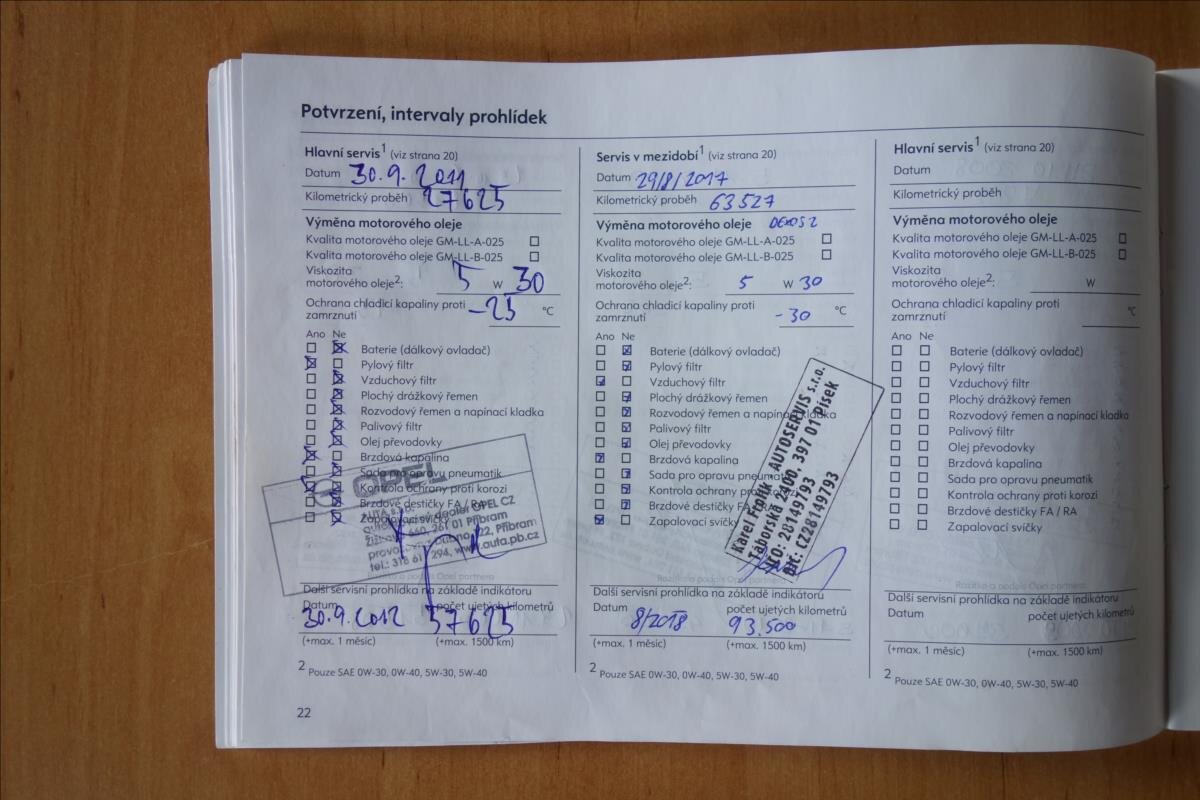 Potvrzení, intervaly prohlídek
Hlavní servis1 (viz strana 20)
Datum 30.9.2011
Kilometrický proběh 27625
Výměna motorového oleje
Kvalita motorového oleje GM-LL-A-025
Kvalita motorového oleje GM-LL-B-025
Viskozita
motorového oleje2: 5 W 30
Ochrana chladicí kapaliny proti
zamrznutí -25 °C
Ano Ne
Baterie (dálkový ovladač)
Pylový filtr
Vzduchový filtr
Plochý drážkový řemen
Rozvodový řemen a napínací kladka
Palivový filtr
Olej převodovky
Brzdová kapalina
Sada pro opravu pneumatik
Kontrola ochrany proti korozi
Brzdové destičky FA / RA
Zapalovací svíčky
OPEL
dealer OPEL CZ
261 01 Příbram
22, Příbram
294, www.auta.pb.cz
Další servisní prohlídka na základě indikátoru
Datum počet ujetých kilometrů
30.9.2012 57625
(+max. 1 měsíc) (+max. 1500 km)
2 Pouze SAE 0W-30, 0W-40, 5W-30, 5W-40
22
Servis v mezidobí1 (viz strana 20)
Datum 29/8/2017
Kilometrický proběh 63527
Výměna motorového oleje DEXOS 2
Kvalita motorového oleje GM-LL-A-025
Kvalita motorového oleje GM-LL-B-025
Viskozita
motorového oleje2: 5 W 30
Ochrana chladicí kapaliny proti
zamrznutí -30 °C
Ano Ne
Baterie (dálkový ovladač)
Pylový filtr
Vzduchový filtr
Plochý drážkový řemen
Rozvodový řemen a napínací kladka
Palivový filtr
Olej převodovky
Brzdová kapalina
Sada pro opravu pneumatik
Kontrola ochrany proti korozi
Brzdové destičky FA / RA
Zapalovací svíčky
Karel - AUTOSERVIS s.r.o.
Táborská 2400, 397 01 Písek
IČO: 28149793
DIČ: CZ28149793
Razítko a podpis Opel partnera
Další servisní prohlídka na základě indikátoru
Datum počet ujetých kilometrů
8/2018 93.500
(+max. 1 měsíc) (+max. 1500 km)
2 Pouze SAE 0W-30, 0W-40, 5W-30, 5W-40
Hlavní servis1 (viz strana 20)
Datum
Kilometrický proběh
Výměna motorového oleje
Kvalita motorového oleje GM-LL-A-025
Kvalita motorového oleje GM-LL-B-025
Viskozita
motorového oleje2: W
Ochrana chladicí kapaliny proti
zamrznutí °C
Ano Ne
Baterie (dálkový ovladač)
Pylový filtr
Vzduchový filtr
Plochý drážkový řemen
Rozvodový řemen a napínací kladka
Palivový filtr
Olej převodovky
Brzdová kapalina
Sada pro opravu pneumatik
Kontrola ochrany proti korozi
Brzdové destičky FA / RA
Zapalovací svíčky
Razítko a podpis Opel partnera
Další servisní prohlídka na základě indikátoru
Datum počet ujetých kilometrů
(+max. 1 měsíc) (+max. 1500 km)
2 Pouze SAE 0W-30, 0W-40, 5W-30, 5W-40